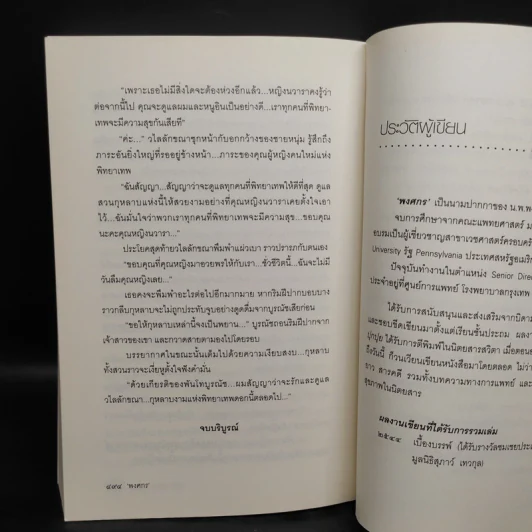 "เพราะเธอไม่มีสิ่งใดจะต้องห่วงอีกแล้ว...หญิงนวาราคงรู้ว่า
ต่อจากนี้ไป คุณจะดูแลผมและหนูอินเป็นอย่างดี...เราทุกคนที่พิทยา-
เทพจะมีความสุขกันเสียที"
"ค่ะ..." วไลลักขณาซุกหน้ากับอกกว้างของชายหนุ่ม รู้สึกถึง
ภาระอันยิ่งใหญ่ที่รออยู่ข้างหน้า...ภาระของคุณผู้หญิงคนใหม่แห่ง
พิทยาเทพ
"ฉันสัญญา...สัญญาว่าจะดูแลทุกคนที่พิทยาเทพให้ดีที่สุด ดูแล
สวนกุหลาบแห่งนี้ให้สวยงามอย่างที่คุณหญิงนวาราเคยตั้งใจเอา
ไว้...ฉันมั่นใจว่าพวกเราทุกคนที่พิทยาเทพจะมีความสุข...ขอบคุณ
นะคะคุณหญิงนวารา..."
ประโยคสุดท้ายวไลลักขณาพึมพำแผ่วเบา ราวปรารภกับตนเอง
"ขอบคุณที่คุณหญิงมาอวยพรให้กับเรา...ชั่วชีวิตนี้...ฉันจะไม่มี
วันลืมคุณหญิงเลย..."
เธอคงจะพึมพำอะไรต่อไปอีกมากมาย หากริมฝีปากบอบบาง
ราวกลีบกุหลาบจะไม่ถูกประทับจูบอย่างดูดดื่มจากบูรณัชเสียก่อน
"ขอให้กุหลาบเหล่านี้จงเป็นพยาน..." บูรณัชถอนริมฝีปากจาก
เจ้าสาวของเขา และกวาดสายตามองไปโดยรอบ
บรรยากาศในขณะนั้นเต็มไปด้วยความเงียบสงบ...กุหลาบ
ทั้งสวนราวจะเงี่ยหูตั้งใจฟังคำมั่น
"ด้วยเกียรติของพันโทบูรณัช...ผมสัญญาว่าจะรักและดูแล
วไลลักขณา...กุหลาบงามแห่งพิทยาเทพดอกนี้ตลอดไป..."
จบบริบูรณ์
๔๙๔ 'พงศกร'
ประวัติผู้เขียน
'พงศกร' เป็นนามปากกาของ น.พ.พง
จบการศึกษาจากคณะแพทยศาสตร์ ม
อบรมเป็นผู้เชี่ยวชาญสาขาเวชศาสตร์ครอบครัว
University รัฐ Pennsylvania ประเทศสหรัฐอเมริก
ปัจจุบันทำงานในตำแหน่ง Senior Direc
ประจำอยู่ที่ศูนย์การแพทย์ โรงพยาบาลกรุงเทพ
ได้รับการสนับสนุนและส่งเสริมจากบิดามา
และชอบขีดเขียนมาตั้งแต่เรียนชั้นประถม ผลงา
ปุกปุย ได้รับการตีพิมพ์ในนิตยสารสวิตา เมื่อตอนอ
ถึงวันนี้ ก็วนเวียนเขียนหนังสือมาโดยตลอด ไม่ว่า
ยาว สารคดี รวมทั้งบทความทางการแพทย์ และ
สุขภาพในนิตยสาร
ผลงานเขียนที่ได้รับการรวมเล่ม
๒๕๔๔ เบื้องบรรพ์ (ได้รับรางวัลชมเชยประเ
มูลนิธิสุภาว์ เทวกุล)